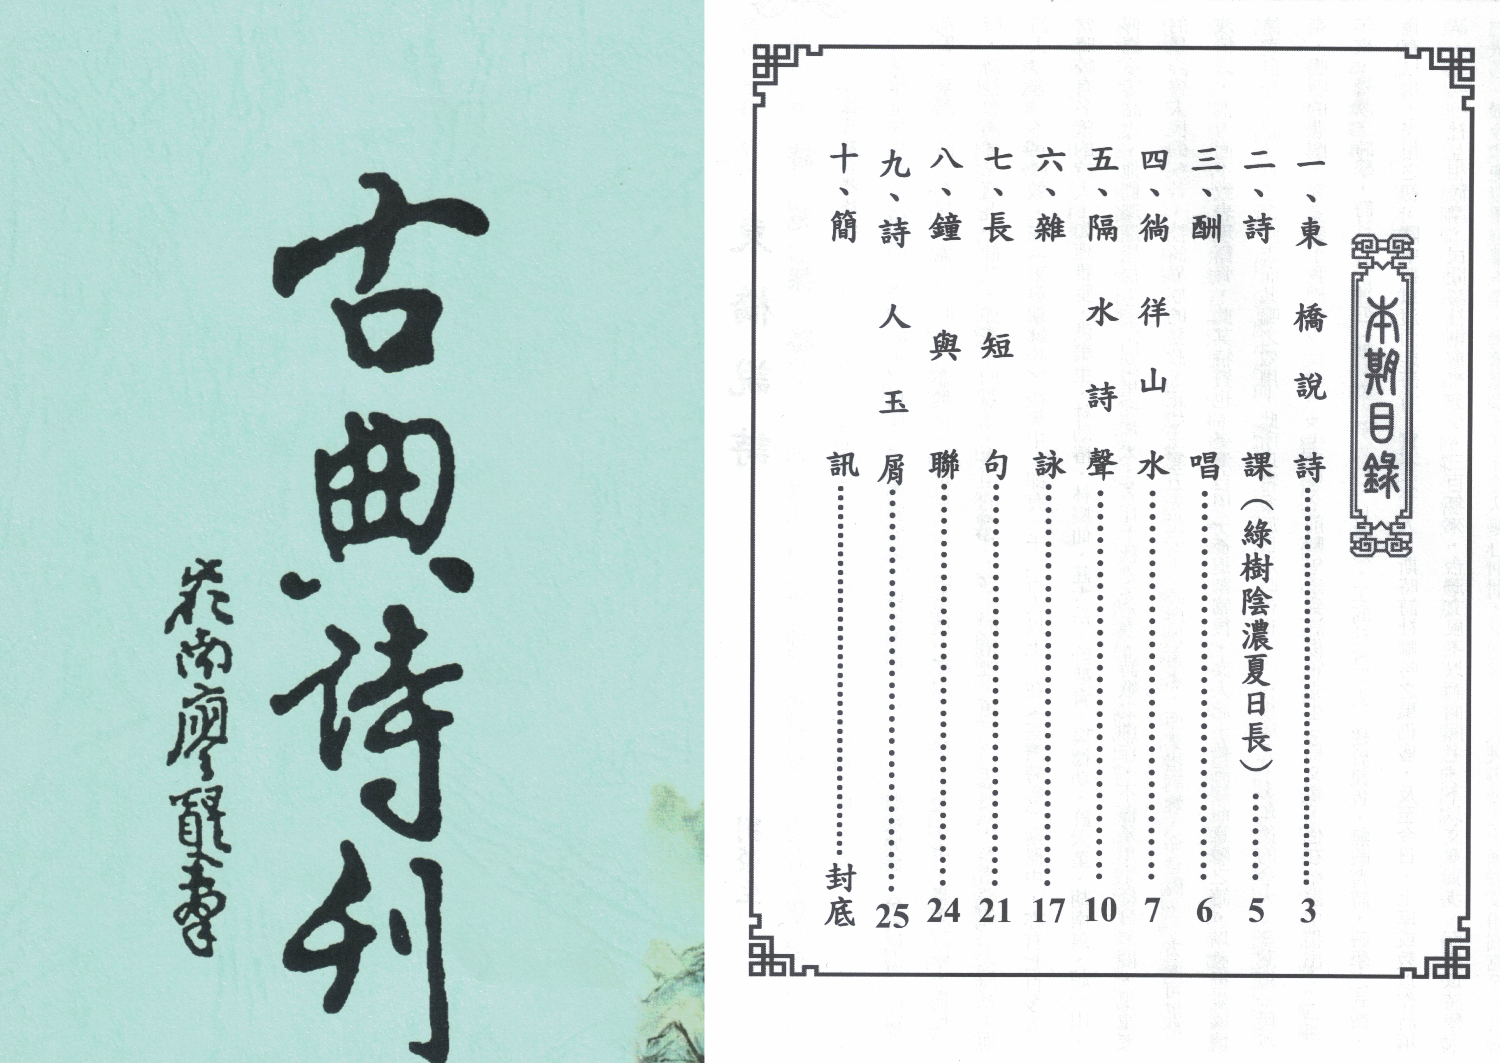 古典詩刊
本期目錄
一、東橋說詩……3
二、詩課(綠樹陰濃夏日長)……5
三、酬唱……6
四、徜徉山水……7
五、隔水詩聲……10
六、雜詠……17
七、長短句……21
八、鐘與聯……24
九、詩人玉屑……25
十、簡訊……封底